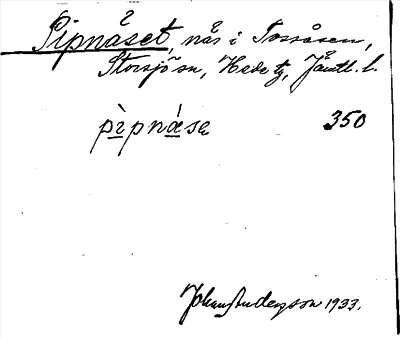 Pipnåset, näs i Tossåsen,
Storsjön, Hede tg, Jämtl. l.
pìpnáse̜ 350
Johan Anderson 1933.